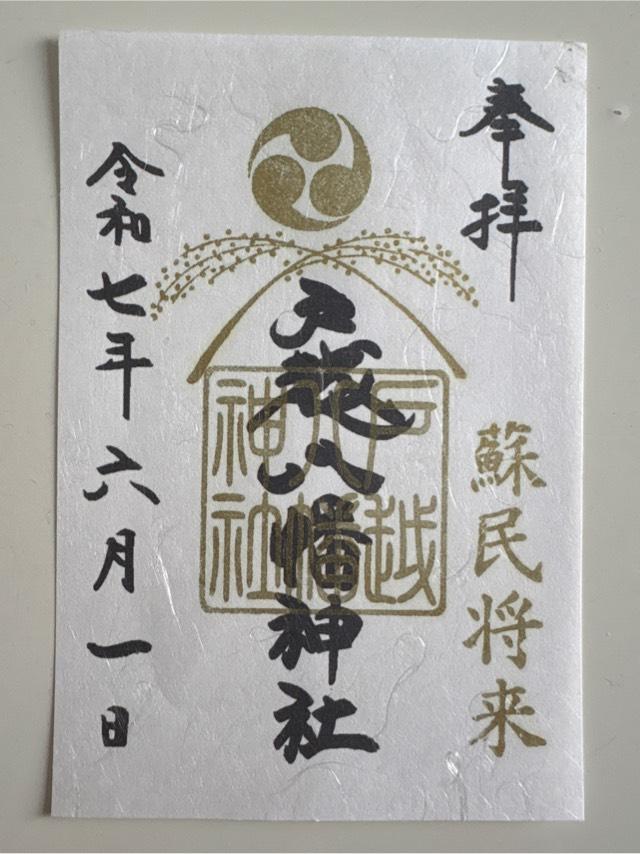 奉拝
蘇民将来
戸越八幡神社
戸越
八幡
神社
令和七年六月一日